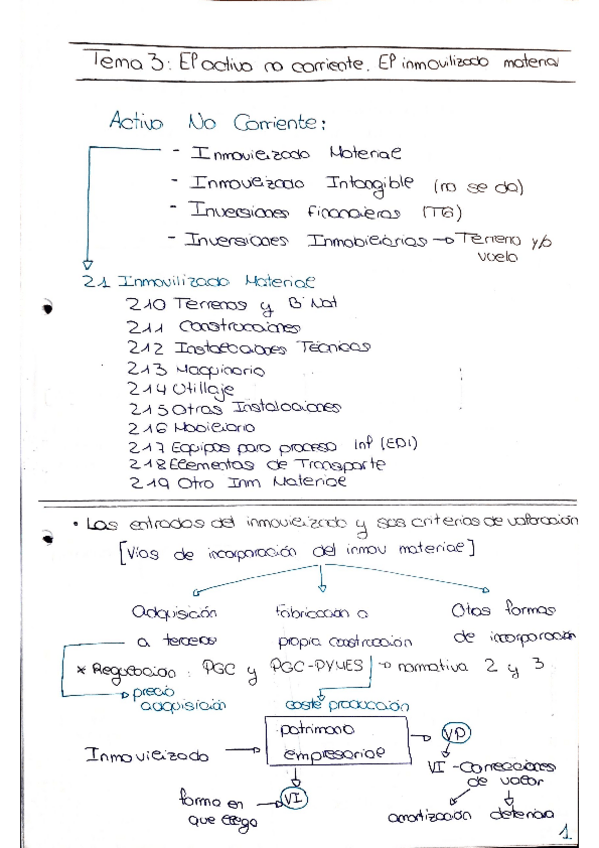 Tema 3: El activo no corriente. El inmovilizado material
Activo No Corriente:
- Inmovilizado Material
- Inmovilizado Intangible (no se da)
- Inversiones financieras (T6)
- Inversiones Inmobiliarias → Terreno y/o
vuelo
21 Inmovilizado Material
210 Terrenos y B. Nat
211 Construcciones
212 Instalaciones Técnicas
213 Maquinaria
214 Utillaje
215 Otras Instalaciones
216 Mobiliario
217 Equipos para proceso Inf (EDI)
218 Elementos de Transporte
219 Otro Inm Material
• Las entradas del inmovilizado y sus criterios de valoración
[Vías de incorporación del inmov material]
Adquisición fabricación o Otras formas
a terceros propia construcción de incorporación
* Regulación: PGC y PGC-PYMES → normativa 2 y 3
→ precio
adquisición coste producción
Inmovilizado → patrimonio
empresarial → VP
VI - Correcciones
de valor
forma en → VI
que llega
amortización deterioro
1